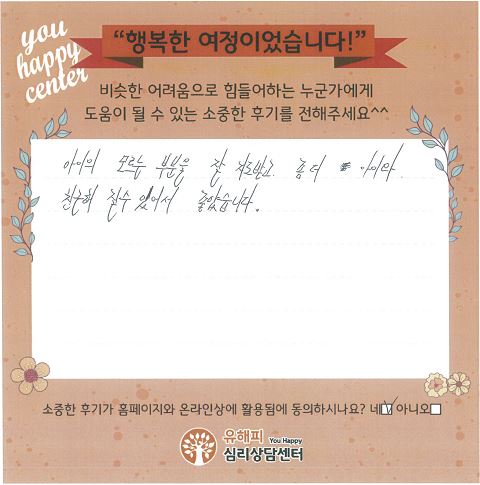 you
happy
center
“행복한 여정이었습니다!”
비슷한 어려움으로 힘들어하는 누군가에게
도움이 될 수 있는 소중한 후기를 전해주세요^^
아이의 모르는 부분을 잘 지도받고 좀 더 아이와
친근히 할수 있어서 좋았습니다.
소중한 후기가 홈페이지와 온라인상에 활용됨에 동의하시나요? 네☑ 아니오☐
유해피 You Happy
심리상담센터